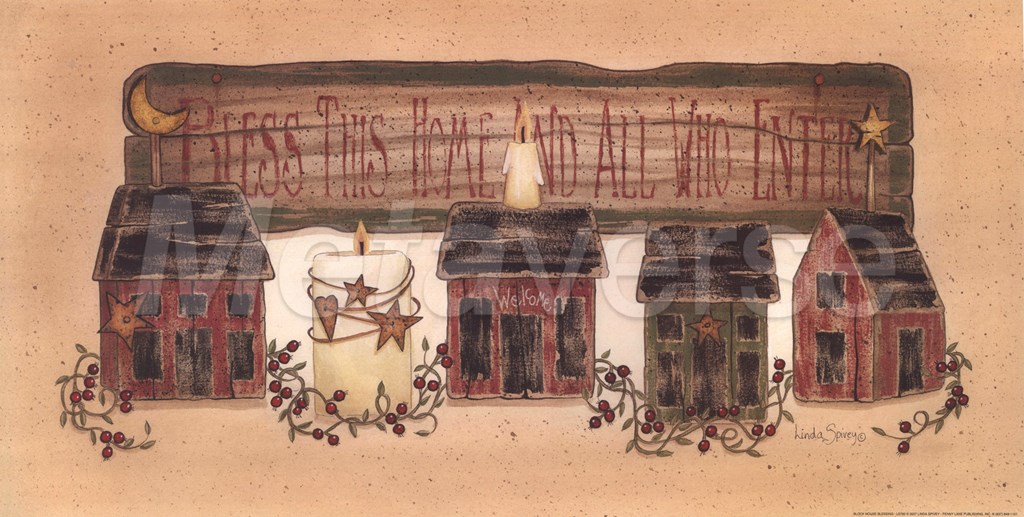 Bless This Home And All Who Enter
Metaverse
Welcome
Linda Spivey ©